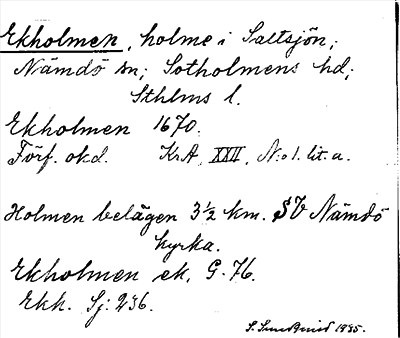 Ekholmen, holme i Saltsjön;
Nämdö sn; Sotholmens hd;
Sthlms l.
Ekholmen 1670.
Förf. okd. KrA, XXII, N:o 1. lit. a.
Holmen belägen 3½ km. SV Nämdö
kyrka.
Ekholmen ek. G. 76.
Ekh. Sj: 236.
S. 1935.